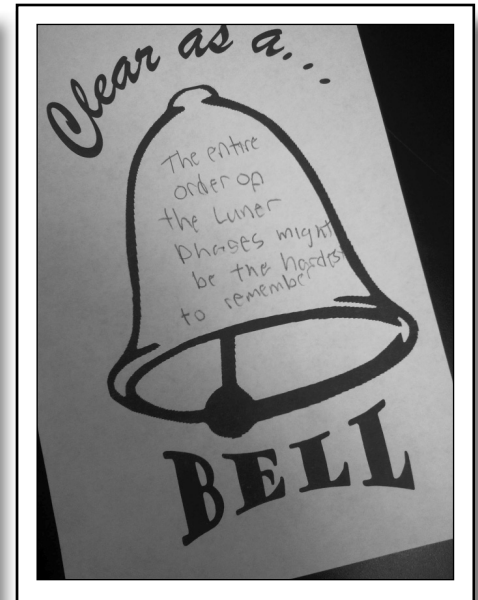 Clear as a...
The entire
order op
the Luner
phases might
be the hardest
to remember
BELL